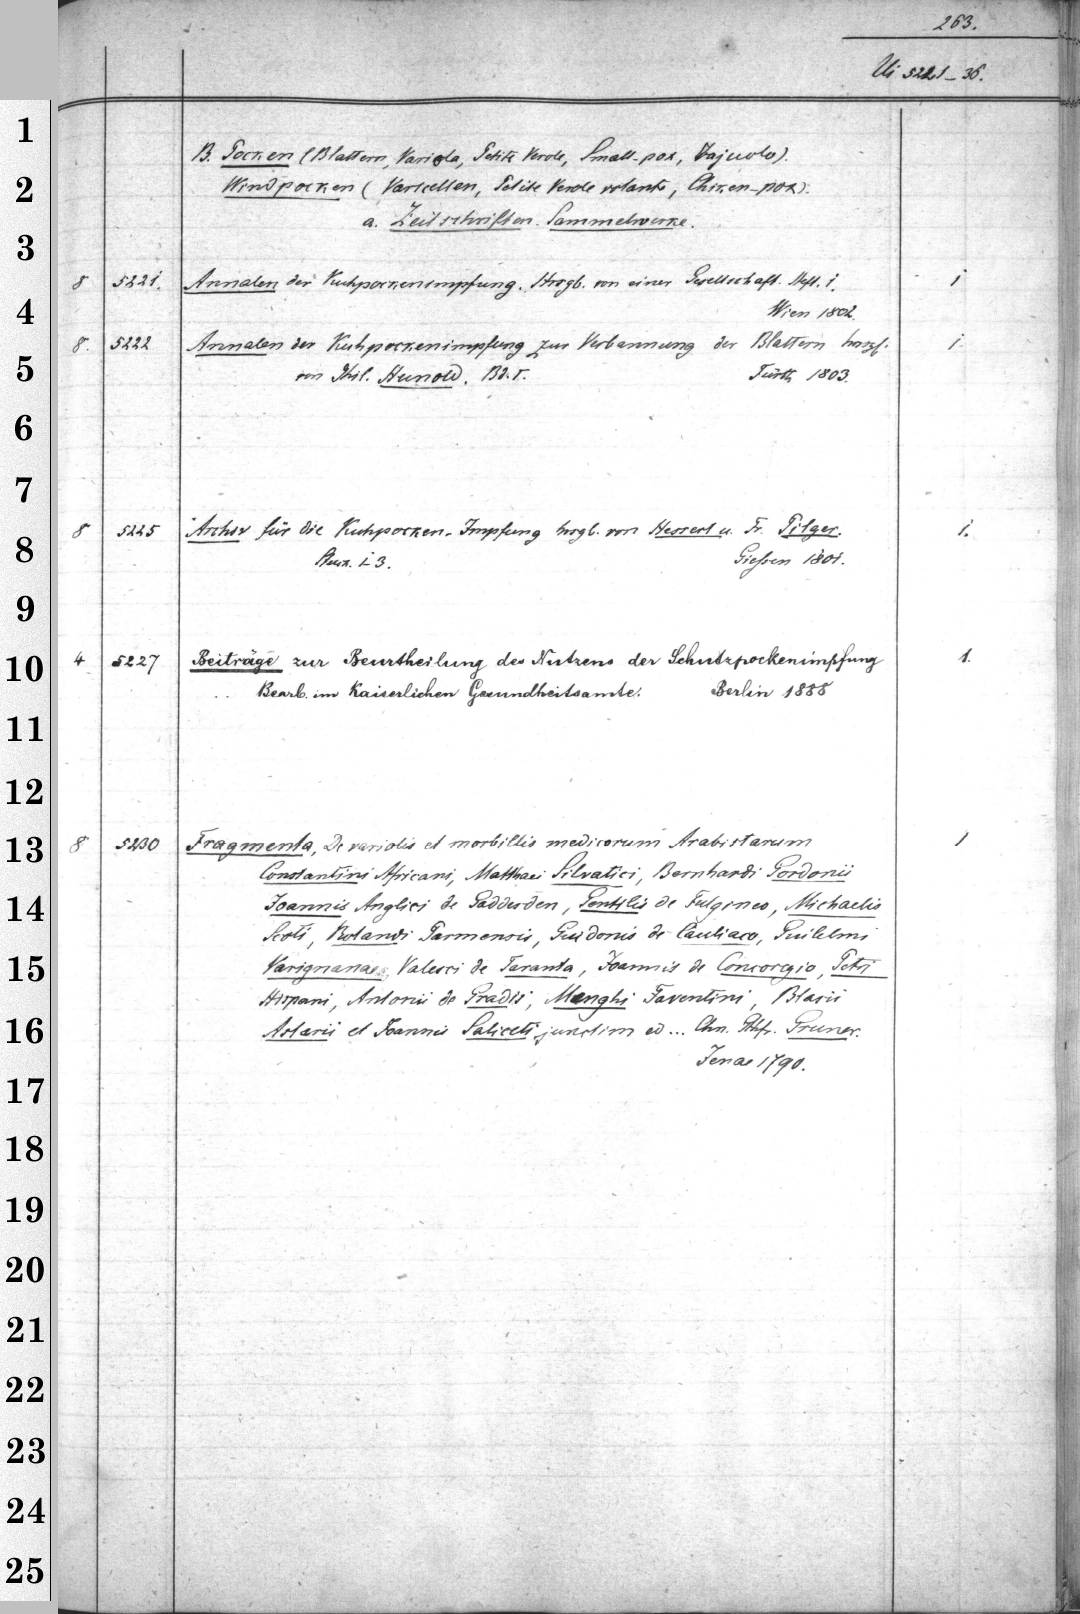 263.
Ui 5221-36.
B. Pocken (Blattern, Variola, Petite Verole, Small-pox, Vajuolo).
Windpocken (Varicellen, Petite Verole volante, Chicken-pox).
a. Zeitschriften. Sammelwerke.
8 5221. Annalen der Kuhpockenimpfung. Hrsgb. von einer Gesellschaft. Heft. 1. 1
Wien 1802.
8. 5222 Annalen der Kuhpockenimpfung zur Verbannung der Blattern hrsg. 1
von Phil. Hunold. Bd. I. Fürth 1803.
8 5225 Archiv für die Kuhpocken-Impfung hrsgb. von Hessert u. Fr. Pilger. 1.
1-3. Giessen 1801.
4 5227 Beiträge zur Beurtheilung des Nutzens der Schutzpockenimpfung 1.
Bearb. im Kaiserlichen Gesundheitsamte. Berlin 1888
8 5230 Fragmenta, De variolis et morbillis medicorum Arabistarum 1
Constantini Africani, Matthaei Silvatici, Bernhardi Gordonii
Joannis Anglici de Gaddesden, Gentilis de Fulgineo, Michaelis
Scoti, Rolandi Parmensis, Guidonis de Cauliaco, Guilelmi
Varignanae, Valesci de Taranta, Joannis de Concoregio, Petri
Hispani, Antonii de Gradis, Menghi Faventini, Blasii
Astarii et Joannis Saliceti junctim ed... Chn. Gthfr. Gruner.
Jenae 1790.
1
2
3
4
5
6
7
8
9
10
11
12
13
14
15
16
17
18
19
20
21
22
23
24
25